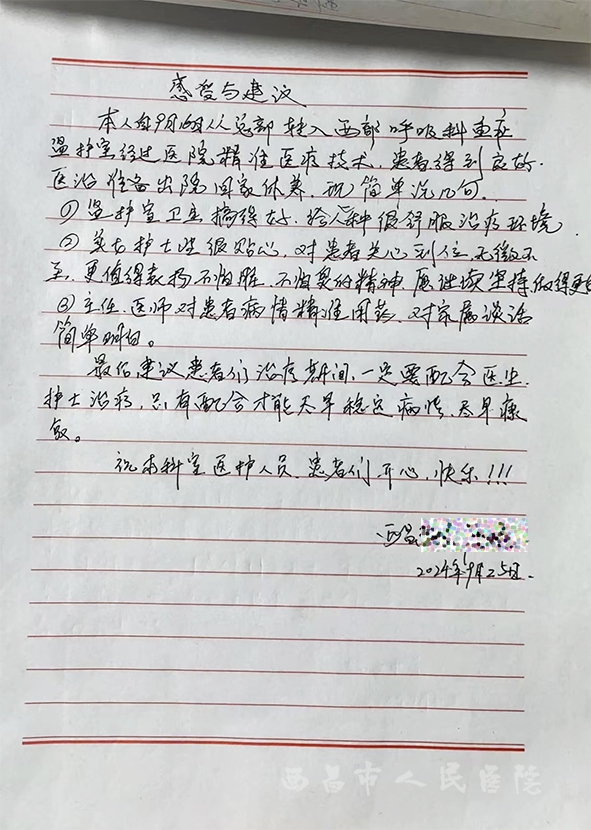 感受与建议
本人在9月16日从总部转入西部呼吸科重症
监护室经过医院精准医疗技术，患者得到良好
医治准备出院回家休养，现简单说几句。
①监护室卫生搞得好，给人种很舒服治疗环境。
②关于护士些很贴心，对患者关心到位，无微不
至，更值得表扬不怕脏，不怕臭的精神愿继续坚持做得更
③主任、医师对患者病情精准用药，对家属谈话
简单明白。
最后，建议患者们治疗期间，一定要配合医生
护士治疗，只有配合才能尽早稳定病情，尽早康
复。
祝本科室医护人员、患者们开心，快乐!!!
西昌
2024年9月25日.
西昌市人民医院